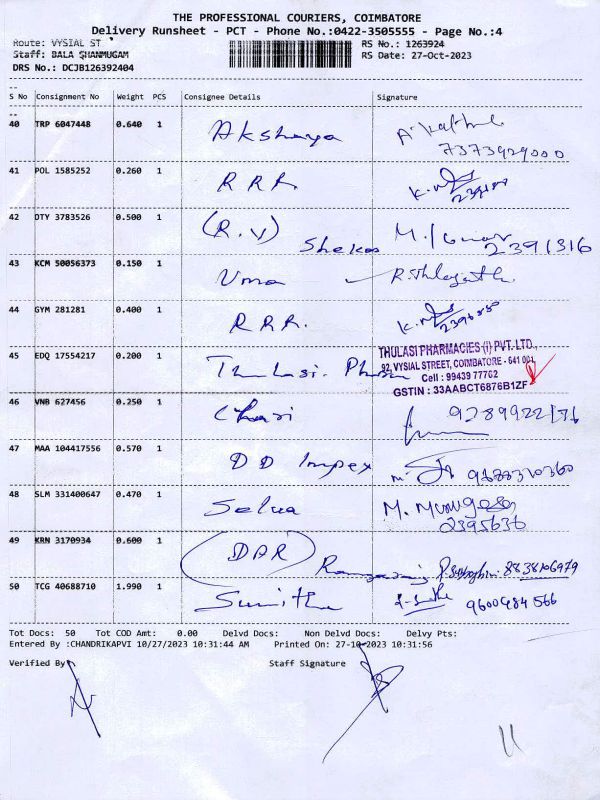 THE PROFESSIONAL COURIERS, COIMBATORE
Delivery Runsheet - PCT - Phone No.:0422-3505555 - Page No.:4
Route: VYSIAL ST RS No.: 1263924
Staff: BALA SHANMUGAM RS Date: 27-Oct-2023
DRS No.: DCJB126392404
S No Consignment No Weight PCS Consignee Details Signature
40 TRP 6047448 0.640 1 Akshaya
7373929000
41 POL 1585252 0.260 1 RRR
42 DTY 3783526 0.500 1 (R.V) M.
2391316
43 KCM 50056373 0.150 1 Uma
44 GYM 281281 0.400 1 RRR.
45 EDQ 17554217 0.200 1 Thulasi. THULASI PHARMACIES (I) PVT. LTD.,
92, VYSIAL STREET, COIMBATORE - 641 001.
Cell : 99439 77762
GSTIN : 33AABCT6876B1ZF
46 VNB 627456 0.250 1 Chari
47 MAA 104417556 0.570 1 DD Impex
48 SLM 331400647 0.470 1 Selva M. Murugesan
2395636
49 KRN 3170934 0.600 1 (DAR) 8838106979
50 TCG 40688710 1.990 1 Sumitha 9600984566
Tot Docs: 50 Tot COD Amt: 0.00 Delvd Docs: Non Delvd Docs: Delvy Pts:
Entered By :CHANDRIKAPVI 10/27/2023 10:31:44 AM Printed On: 27-10-2023 10:31:56
Verified By Staff Signature